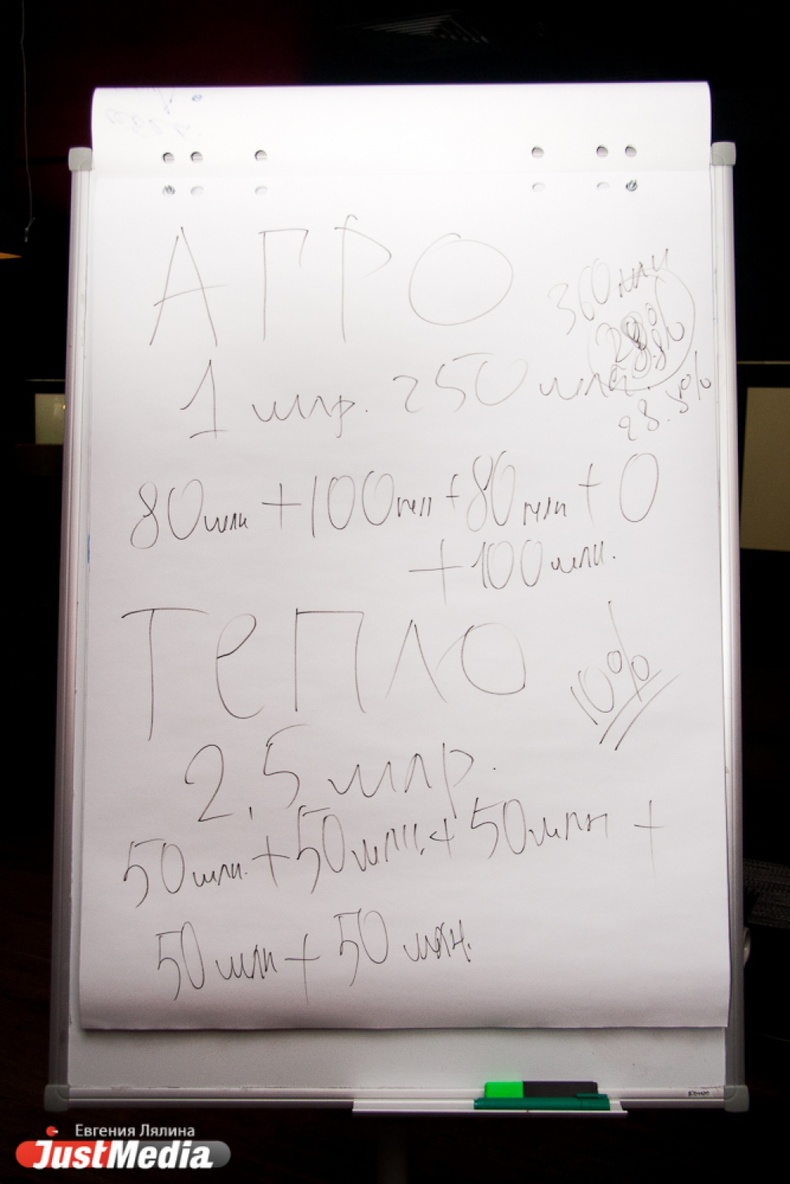 АГРО
360 млн
28.8%
1 млр. 250 млн.
28.8%
80 млн + 100 млн + 80 млн + 0
+ 100 млн.
ТеПЛО
10%
2,5 млр.
50 млн. + 50 млн. + 50 млн +
50 млн + 50 млн.
Евгения Лялина
JustMedia